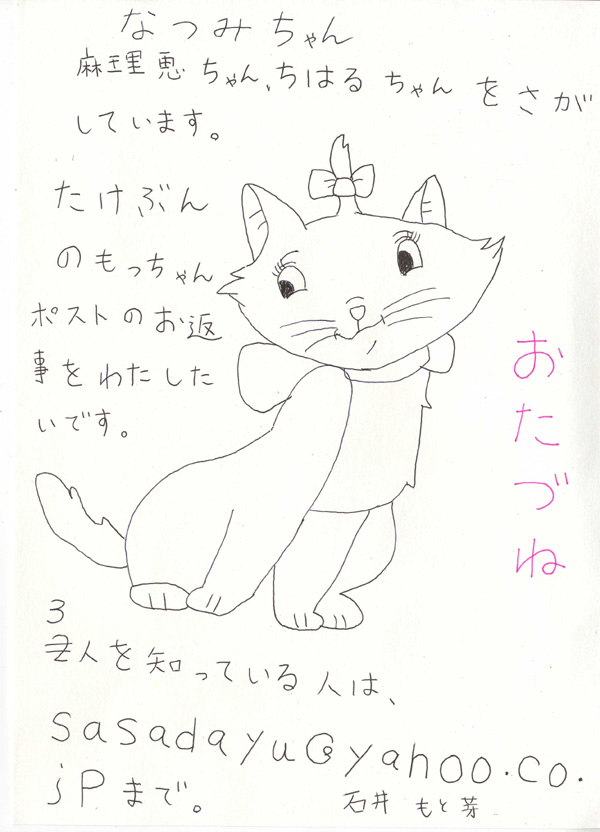 なつみちゃん
麻理恵ちゃん、ちはるちゃんをさが
しています。
たけぶん
のもっちゃん
ポストのお返
事をわたした
いです。
おたづね
3
人を知っている人は、
sasadayu@yahoo.co.
jpまで。
石井 もと芽